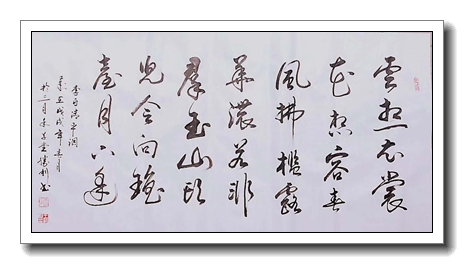 雲想衣裳
花想容春
風拂檻露
華濃若非
羣玉山頭
見今向瑤
臺月下逢
李白清平調
戊戌年